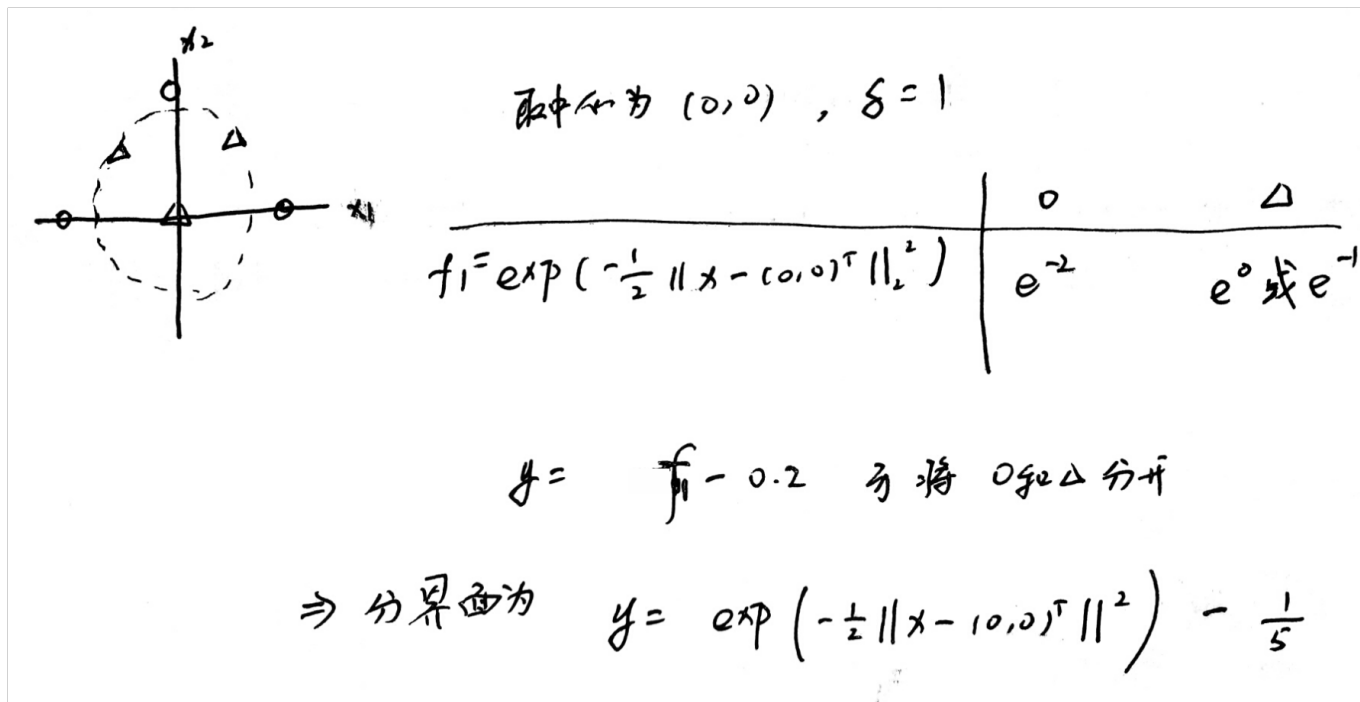 x2
x1
取中心为 (0,0) , δ = 1
O △
f1 = exp(-1/2 ||x-(0,0)ᵀ||₂²) e⁻² e⁰ 或 e⁻¹
y = f1 - 0.2 可将 O和△ 分开
⇒ 分界面为 y = exp(-1/2 ||x-(0,0)ᵀ||²) - 1/5